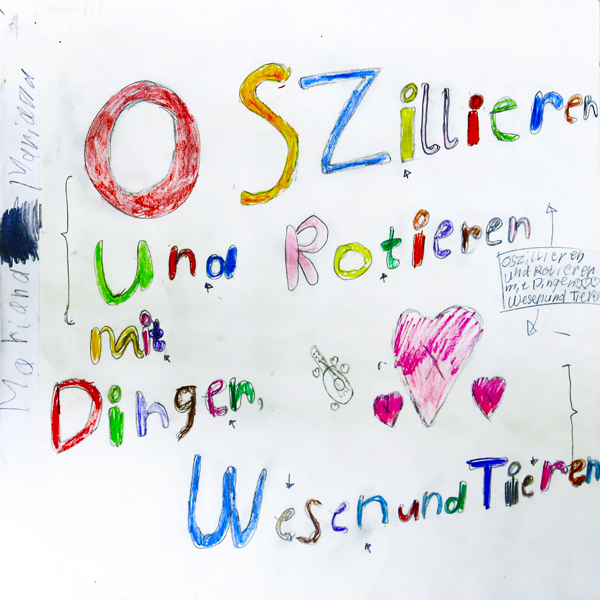 OSZillieren
und Rotieren
mit
Dingen,
Wesen und Tieren
Oszillieren
und Rotieren
mit Dingen
Wesen und Tieren
Mariana
Mariana